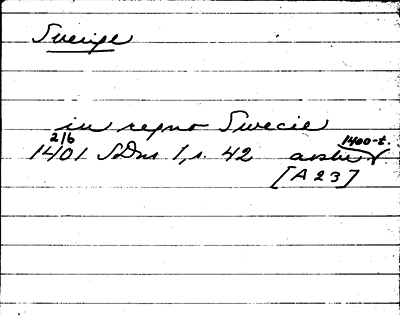 Sverige
in regno Swecie
2/6 1400-t.
1401 SDns 1, s. 42 avskr
[A 23]